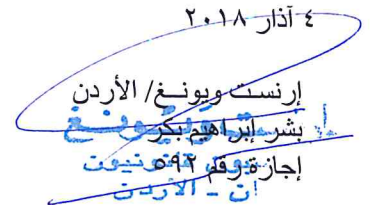 ٤ آذار ٢٠١٨
إرنست ويونغ/ الأردن
بشر إبراهيم بكر
إجازة رقم ٥٩٢